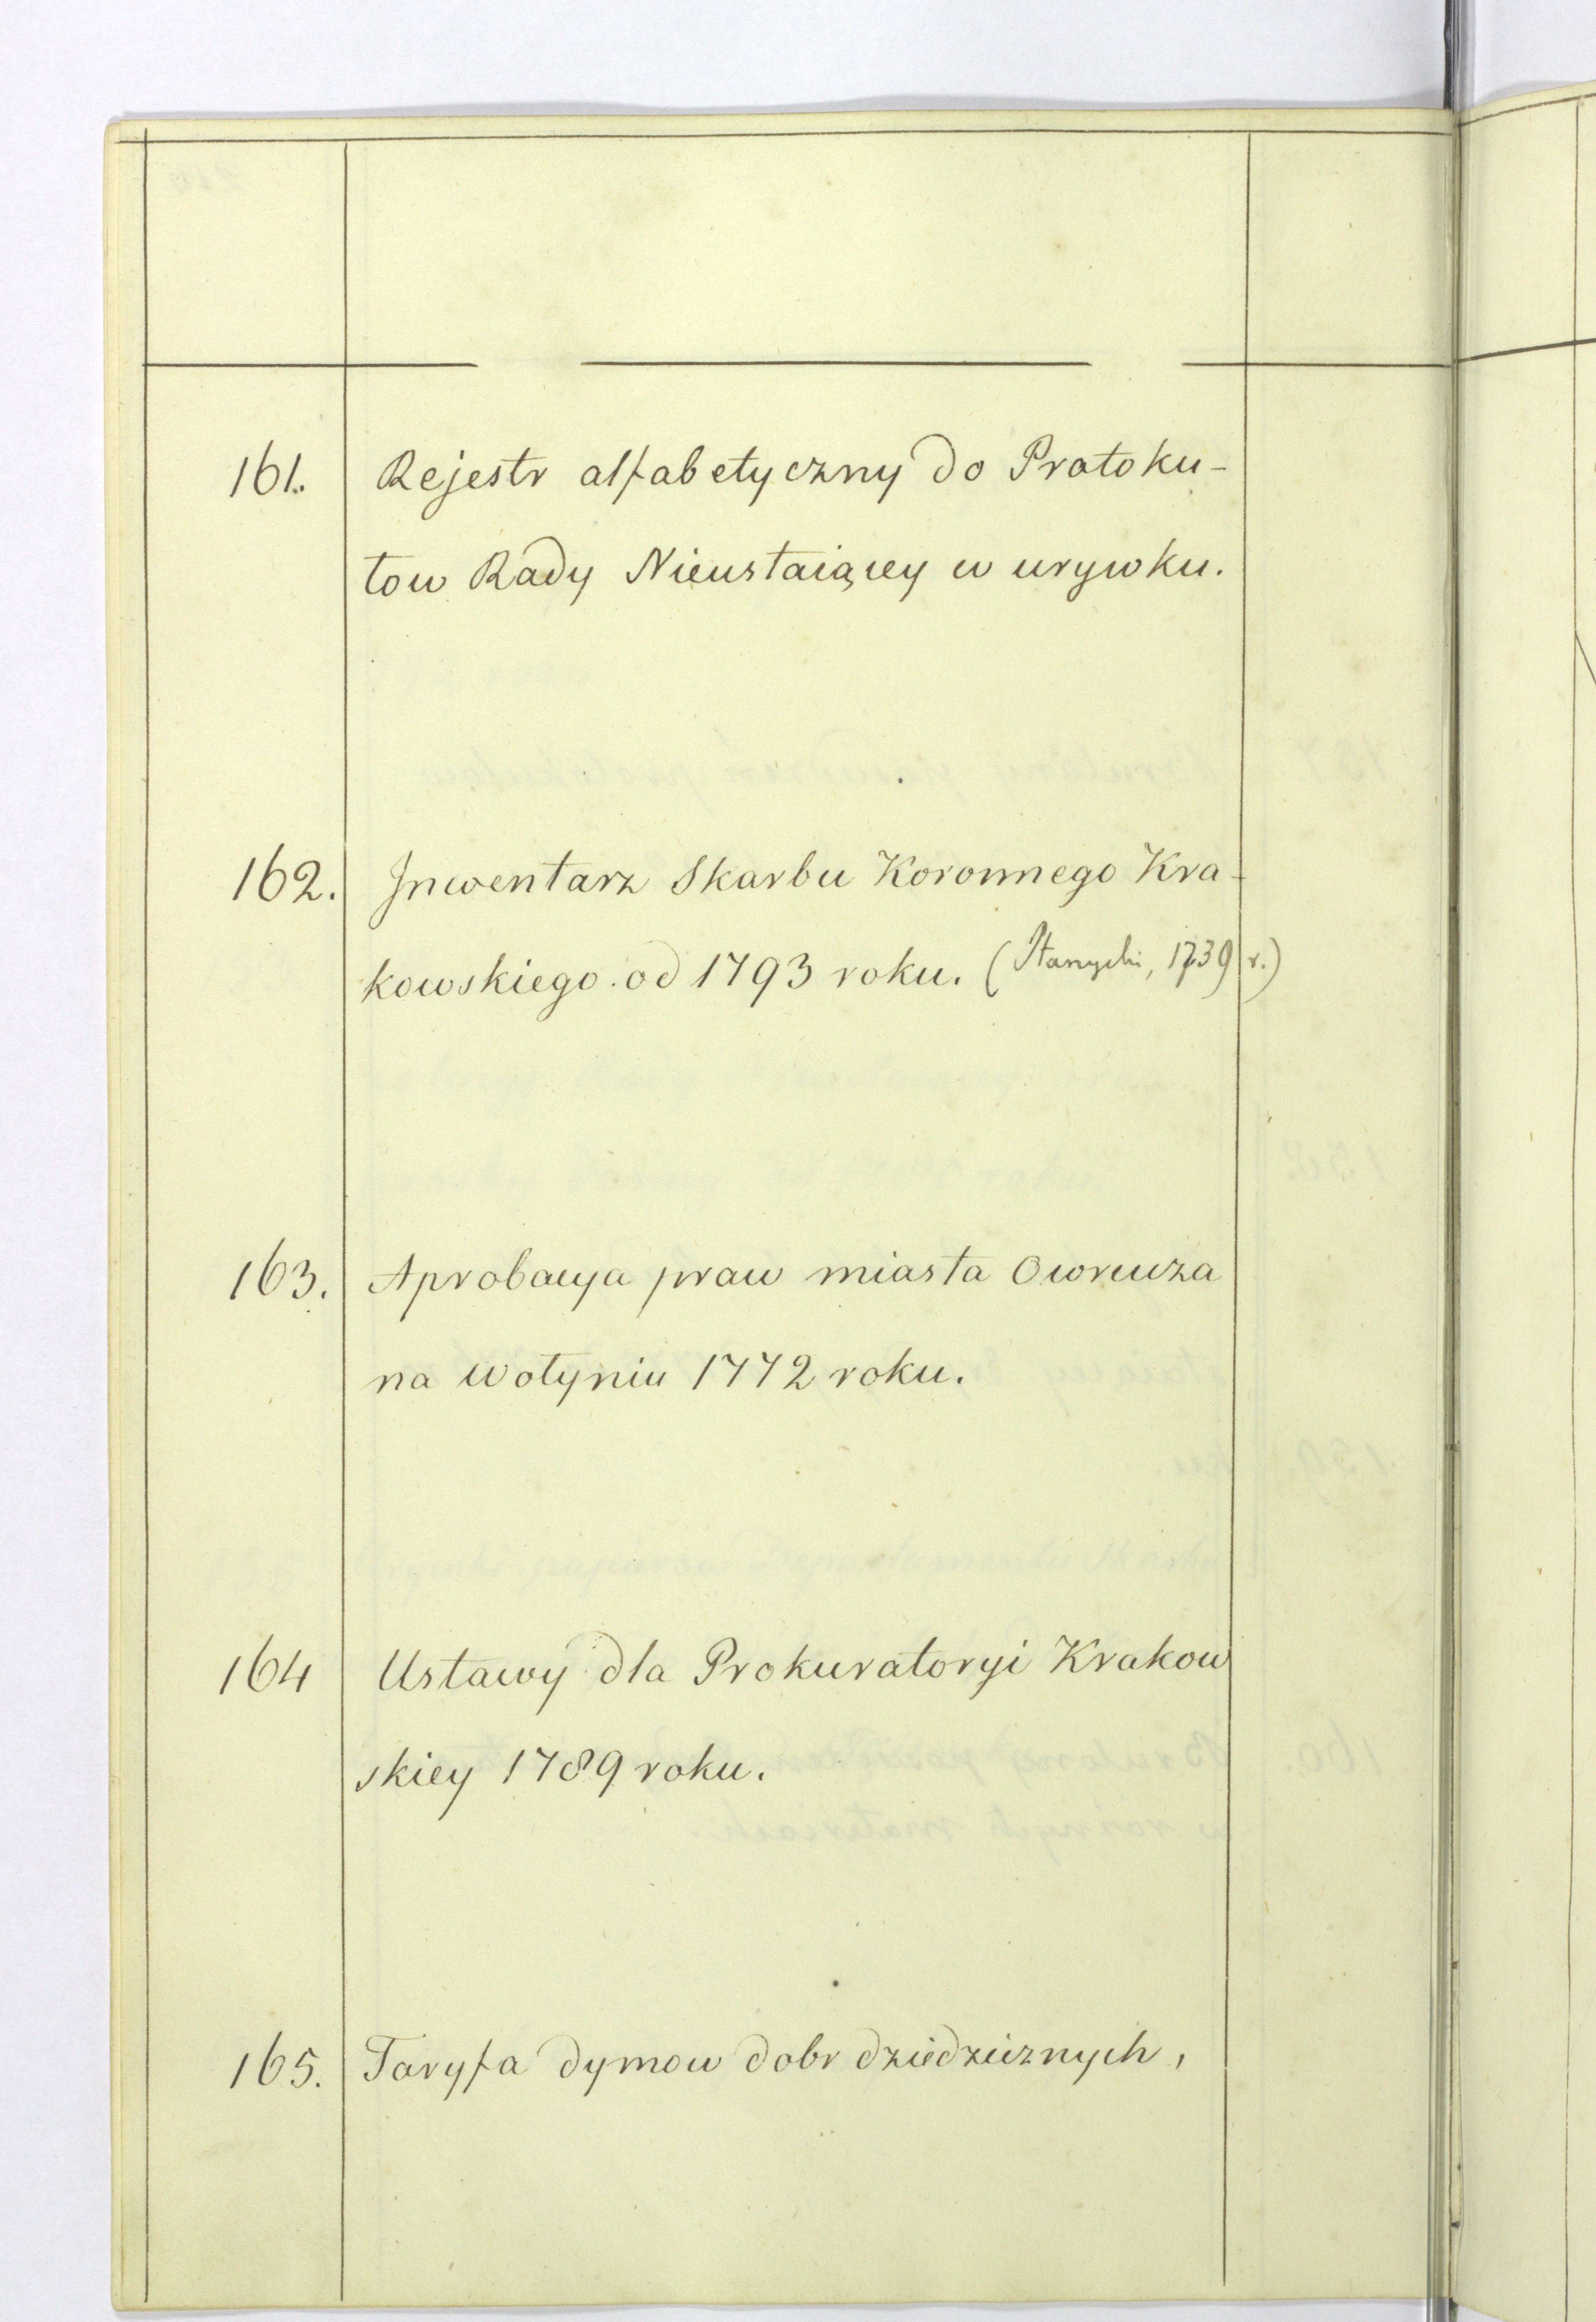 161. Rejestr alfabetyczny do Protoku-
łow Rady Nieustaiącey w urywku.
162. Inwentarz Skarbu Koronnego Kra-
kowskiego od 1793 roku. ( 1739 r.)
163. Aprobacya praw miasta Owrucza
na Wołyniu 1772 roku.
164 Ustawy dla Prokuratoryi Krakow
skiey 1789 roku.
165. Taryfa dymow dobr dziedzicznych,